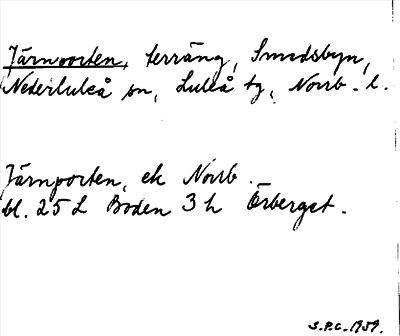 Järnporten, terräng, Smedsbyn,
Nederluleå sn, Luleå tg, Norrb. l.
Järnporten, ek Norrb.
bl. 25 L Boden 3 h Örberget.
S.P.C. 1959.